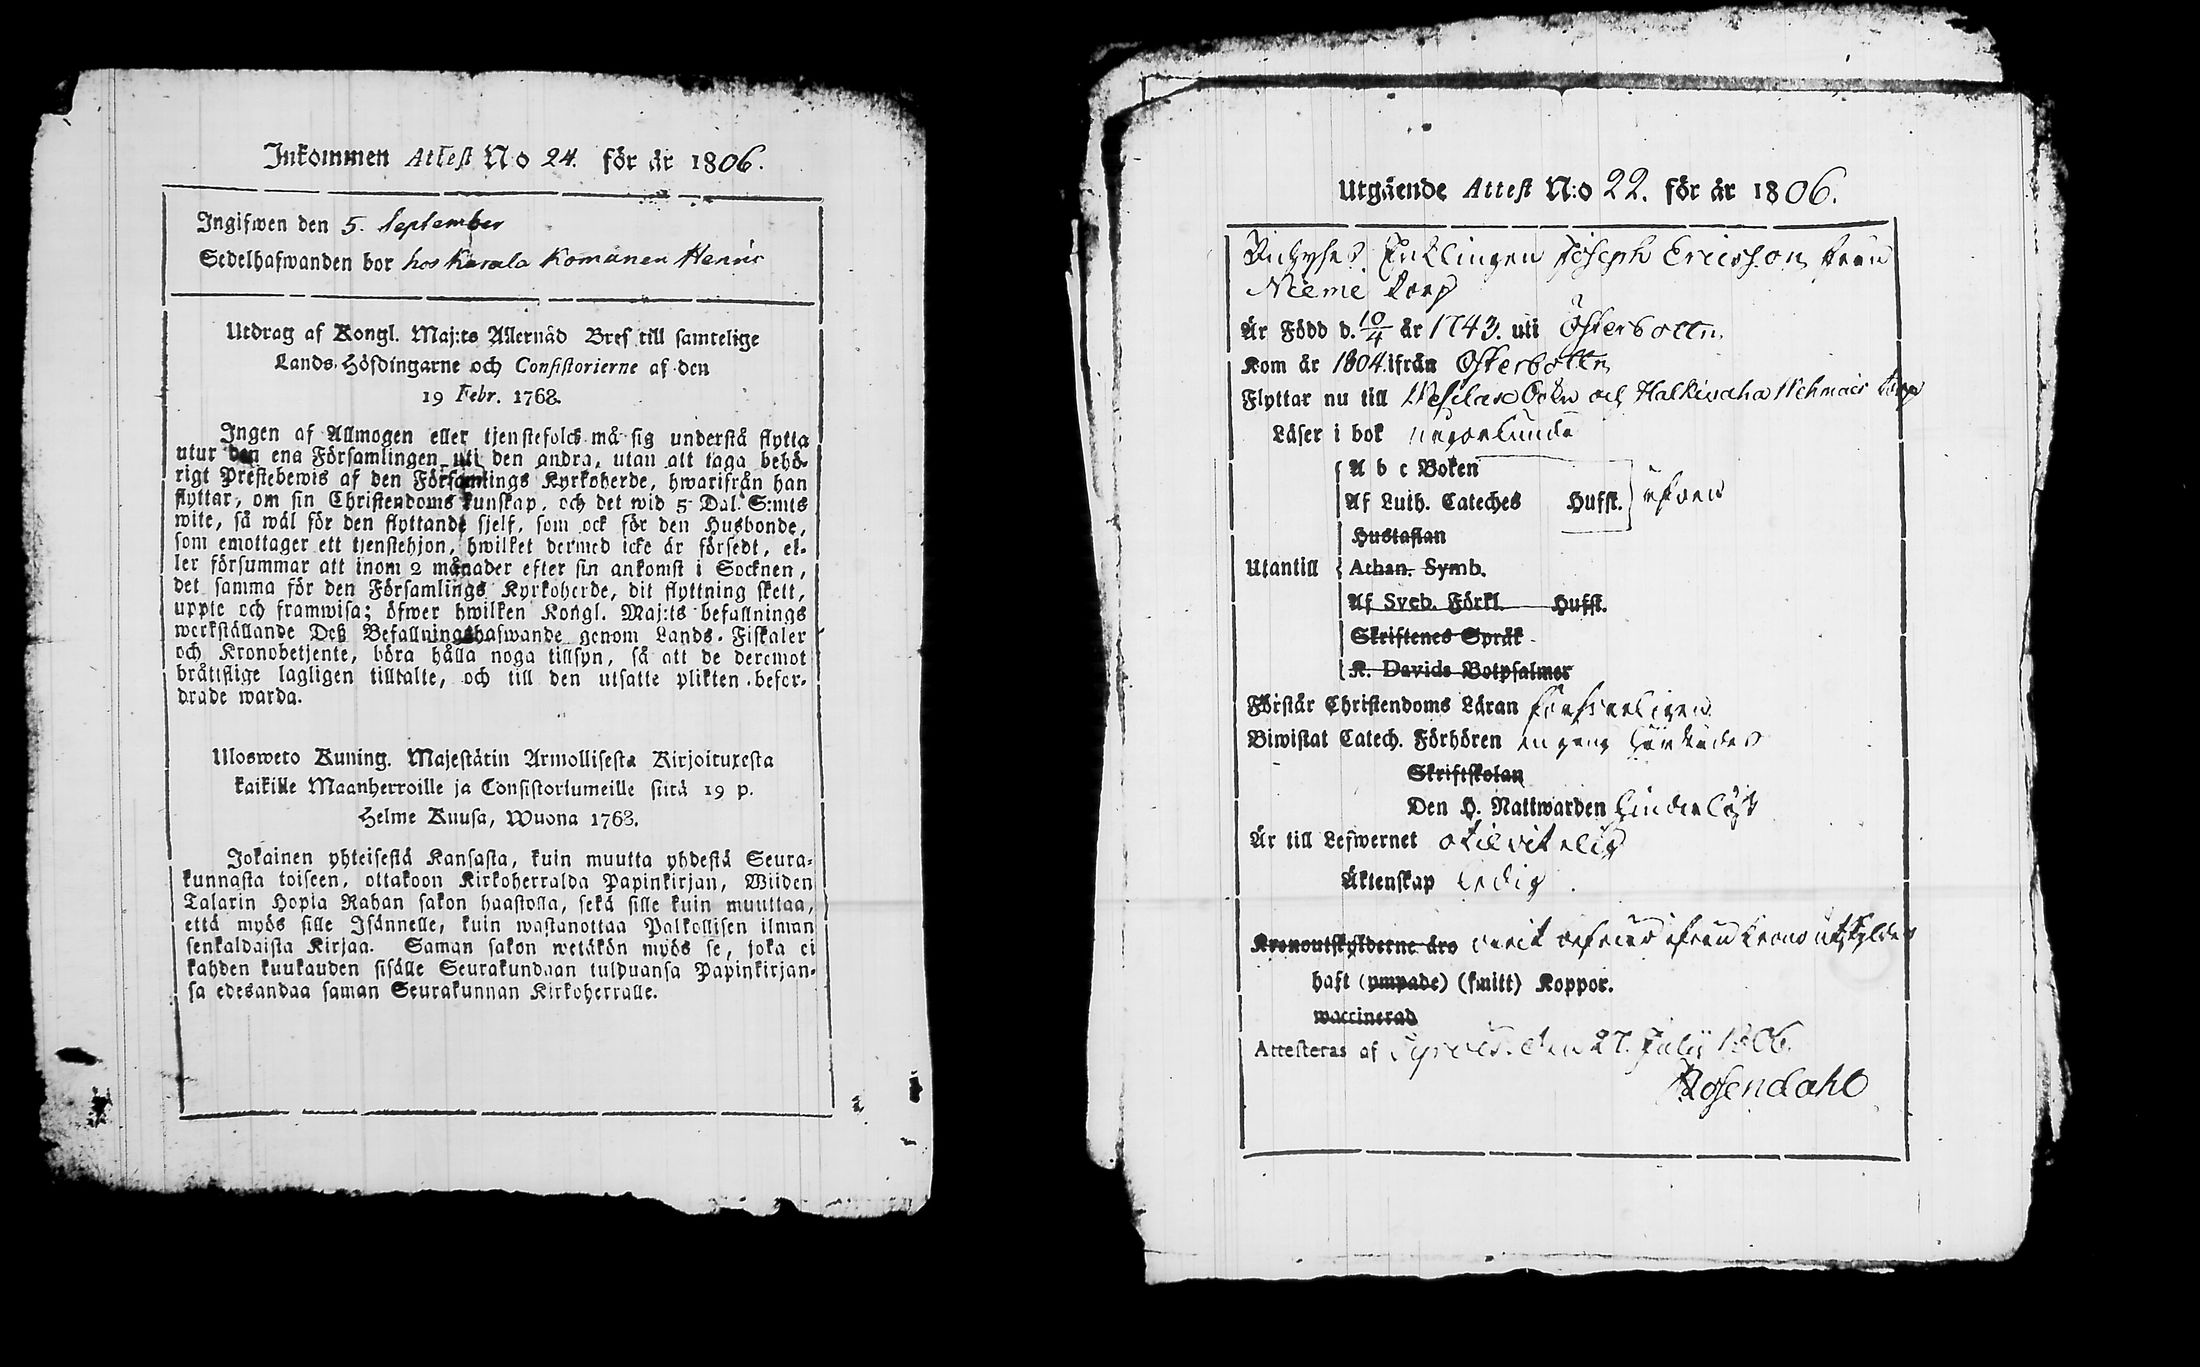 Inkommen Attest No 24. för år 1806.
Ingifwen den 5. September
Sedelhafwanden bor hos Karala Komanen Henric
Utdrag af Kongl. Maj:ts Allernåd Bref till samtelige
Lands-Höfdingarne och Consistorierne af den
19 Febr. 1768.
Ingen af Allmogen eller tjenstefolck må sig understå flytta
utur den ena Församlingen uti den andra, utan att taga behö-
rigt Prestebewis af den Församlings Kyrkoherde, hwarifrån han
flyttar, om sin Christendoms kunskap, och det wid 5 Dal. S:mts
wite, så wäl för den flyttande sjelf, som ock för den Husbonde,
som emottager ett tjenstehjon, hwilket dermed icke är försedt, el-
ler försummar att inom 2 månader efter sin ankomst i Socknen,
det samma för den Församlings Kyrkoherde, dit flyttning skett,
uppte och framwisa; öfwer hwilken Kongl. Maj:ts befallnings
werkställande Deß Befallningshafwande genom Lands-Fiskaler
och Kronobetjente, böra hålla noga tillsyn, så att de deremot
bråttslige lagligen tilltalte, och till den utsatte plikten befor-
drade warda.
Ulosweto Kuning. Majestätin Armollisesta Kirjoituxesta
kaikille Maanherroille ja Consistoriumeille siitä 19 p.
Helme Kuusa, Wuona 1768.
Jokainen yhteisestä Kansasta, kuin muutta yhdestä Seura-
kunnasta toiseen, ottakoon Kirkoherralda Papinkirjan, Wiiden
Talarin Hopia Rahan sakon haastolla, sekä sille kuin muuttaa,
että myös sille Isännelle, kuin wastanottaa Palkollisen ilman
senkaldaista Kirjaa. Saman sakon wetäkön myös se, joka ei
kahden kuukauden sisälle Seurakundaan tulduansa Papinkirjan-
sa edesandaa saman Seurakunnan Kirkoherralle.
Utgående Attest N:o 22. för år 1806.
Enklingen Joseph Ericsson från
Niemi torp
Är Född d. 10/4 år 1743. uti Österbotten
Kom år 1804 ifrån Österbotten
Flyttar nu till Wesilax Sokn och torp
Läser i bok någorlunda
A b c Boken
Af Luth. Cateches Hufst.
Hustaflan
Utantill Athan. Symb.
Af Sveb. Förkl. Hufst.
Skriftenes Språk
K. Davids Botpsalmer
Förstår Christendoms Läran förswarligen
Biwistat Catech. Förhören en gang
Skriftskolan
Den H. Nattwarden
Är till Lefwernet otilvitelig
Äktenskap ledig.
Kronoutskylderne äro varit befriad ifrån Krono utskylder
haft (ympade) (smitt) Koppor.
waccinerad
Attesteras af den 27. Julii 1806.
Rosendahl